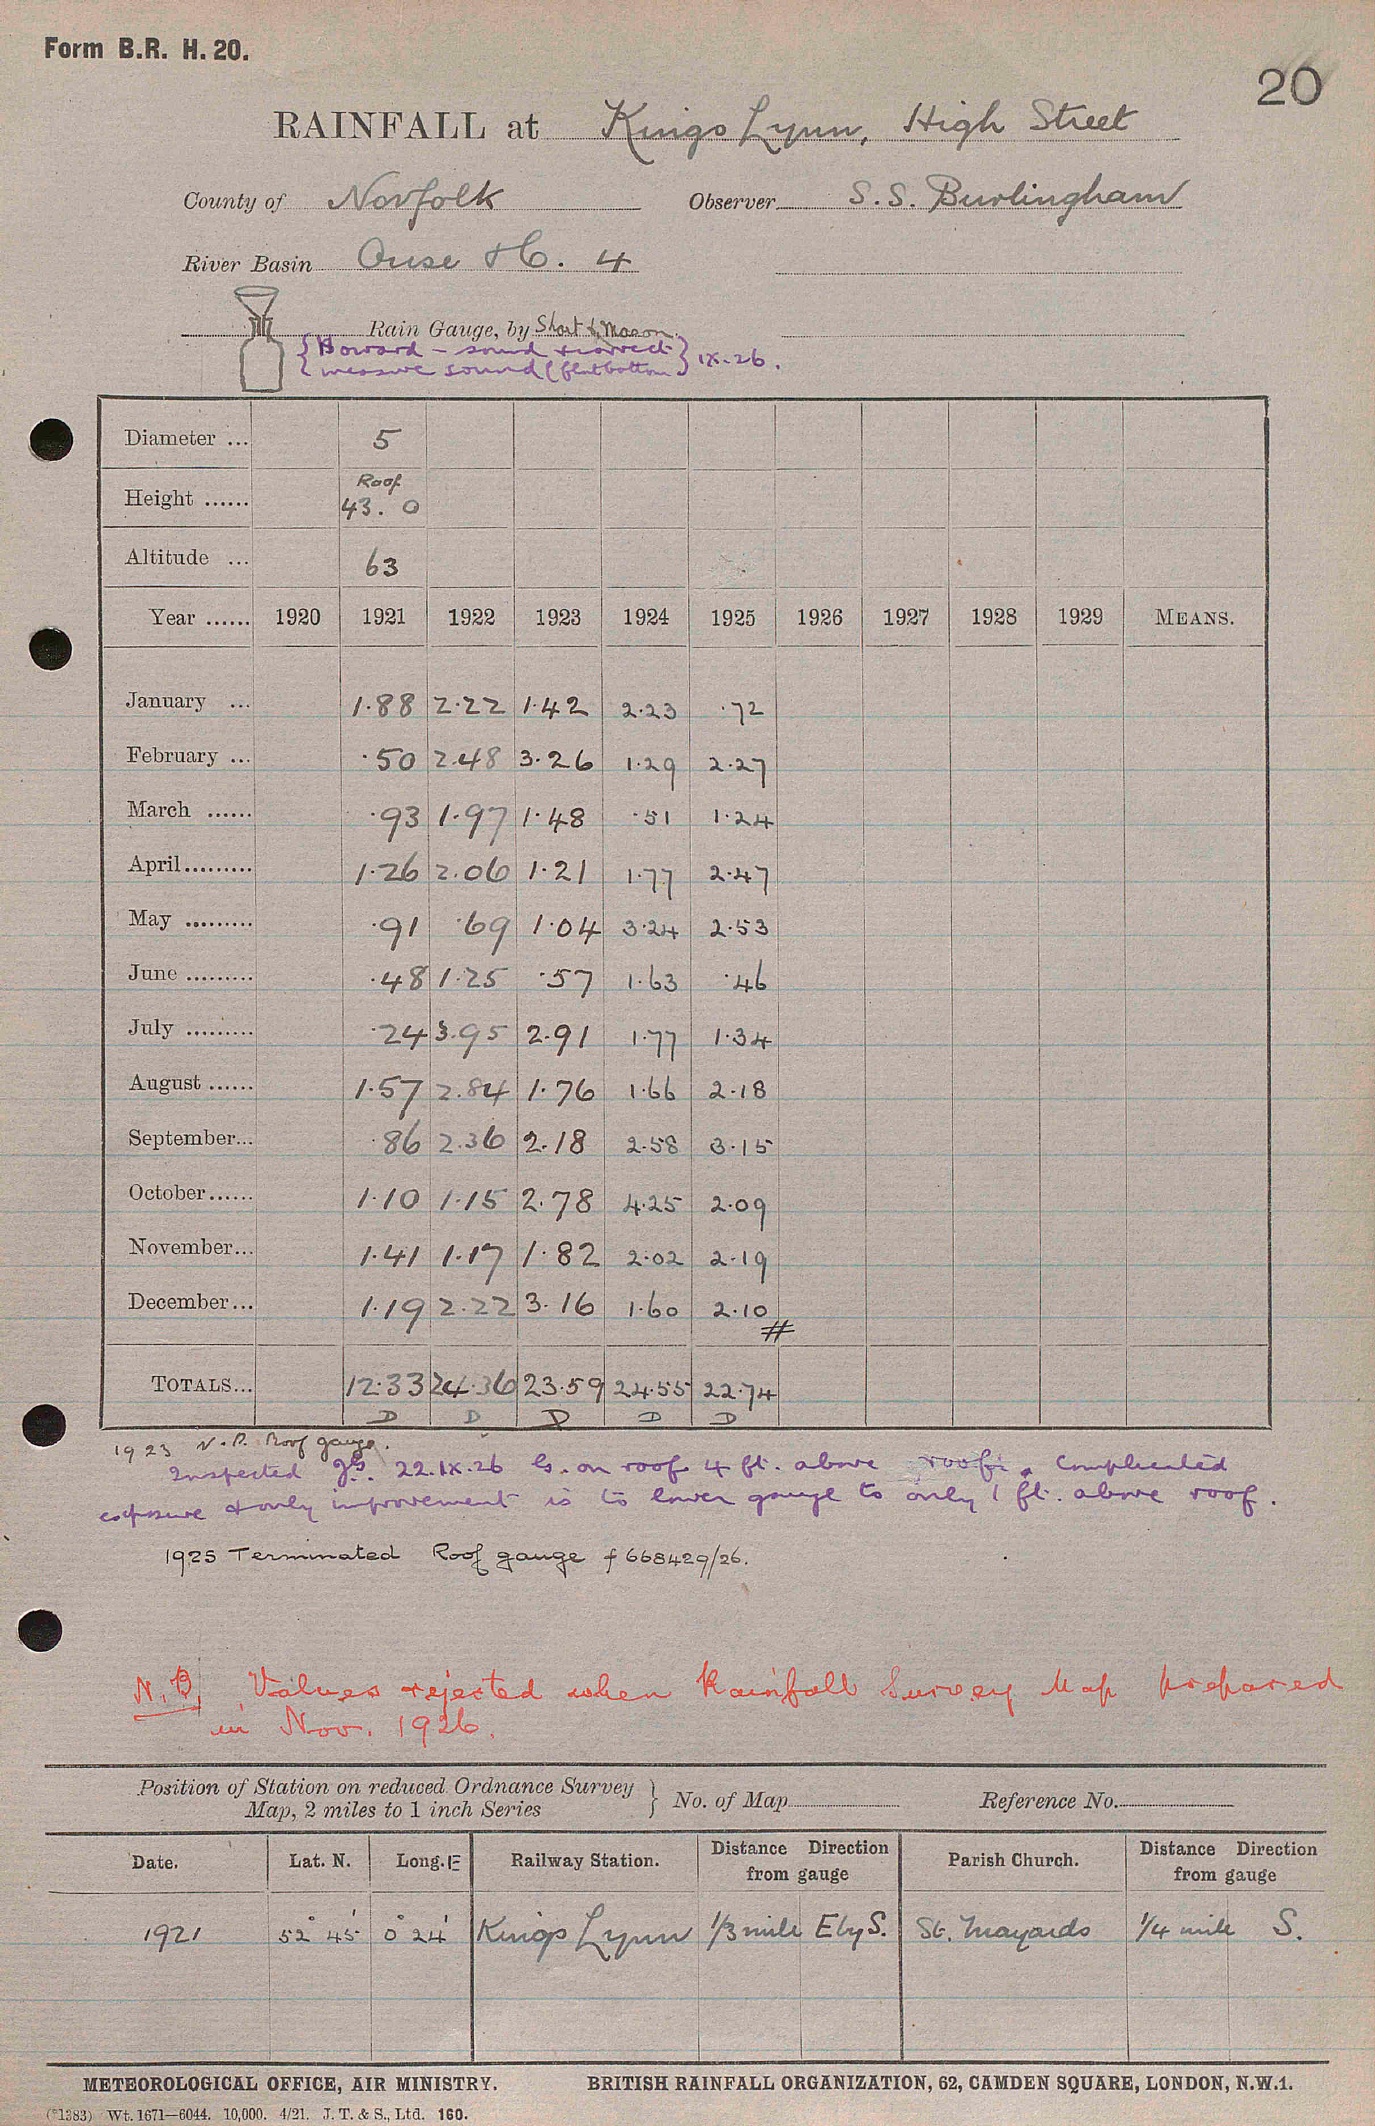 Form B.R. H. 20.
20
RAINFALL at Kings Lynn, High Street
County of Norfolk Observer S. S. Burlingham
River Basin Ouse &c. 4
Rain Gauge, by Short & Mason.
{Howard - sound & correct} IX.26.
{measure sound (flat bottom}
Diameter ... 5
Roof
Height ...... 43. 0
Altitude ... 63
Year ...... 1920 1921 1922 1923 1924 1925 1926 1927 1928 1929 MEANS.
January ... 1.88 2.22 1.42 2.23 .72
February ... .50 2.48 3.26 1.29 2.27
March ...... .93 1.97 1.48 .51 1.24
April......... 1.26 2.06 1.21 1.77 2.47
May ......... .91 .69 1.04 3.24 2.53
June ......... .48 1.25 .57 1.63 .46
July ......... .24 3.95 2.91 1.77 1.34
August ...... 1.57 2.84 1.76 1.66 2.18
September... .86 2.36 2.18 2.58 3.15
October...... 1.10 1.15 2.78 4.25 2.09
November... 1.41 1.17 1.82 2.02 2.19
December... 1.19 2.22 3.16 1.60 2.10
#
TOTALS... 12.33 24.36 23.59 24.55 22.74
D D D D D
1923 N.P. Roof gauge.
Inspected 22.IX.26 G. on roof 4 ft. above roof. Complicated
exposure & only improvement is to lower gauge to only 1 ft. above roof.
1925 Terminated Roof gauge f 668429/26.
N.B. Values rejected when Rainfall Survey Map prepared
in Nov. 1926.
Position of Station on reduced Ordnance Survey
Map, 2 miles to 1 inch Series } No. of Map Reference No.
Date. Lat. N. Long. E Railway Station. Distance from gauge Direction Parish Church. Distance from gauge Direction
1921 52° 45' 0° 24' Kings Lynn 1/3 mile E by S. St. Mayards 1/4 mile S.
METEOROLOGICAL OFFICE, AIR MINISTRY. BRITISH RAINFALL ORGANIZATION, 62, CAMDEN SQUARE, LONDON, N.W.1.
(*1383) Wt. 1671—6044. 10,000. 4/21. J. T. & S., Ltd. 160.